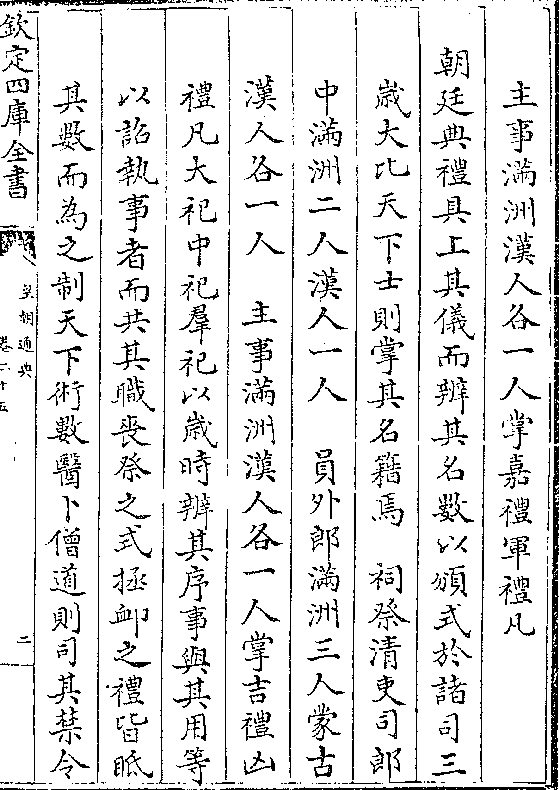 主事滿洲漢人各一人掌嘉禮軍禮凡
朝廷典禮具上其儀而辨其名數以頒式於諸司三
歲大比天下士則掌其名籍焉　祠祭清吏司郎
中滿洲二人漢人一人　員外郎滿洲三人蒙古
漢人各一人　主事滿洲漢人各一人掌吉禮凶
禮凡大祀中祀羣祀以歲時辦其序事與其用等
以詔執事者而共其職喪祭之式拯卹之禮皆眡
其數而為之制天下術數醫卜僧道則司其禁令
欽定四庫全書
皇朝通典
卷二十五
二